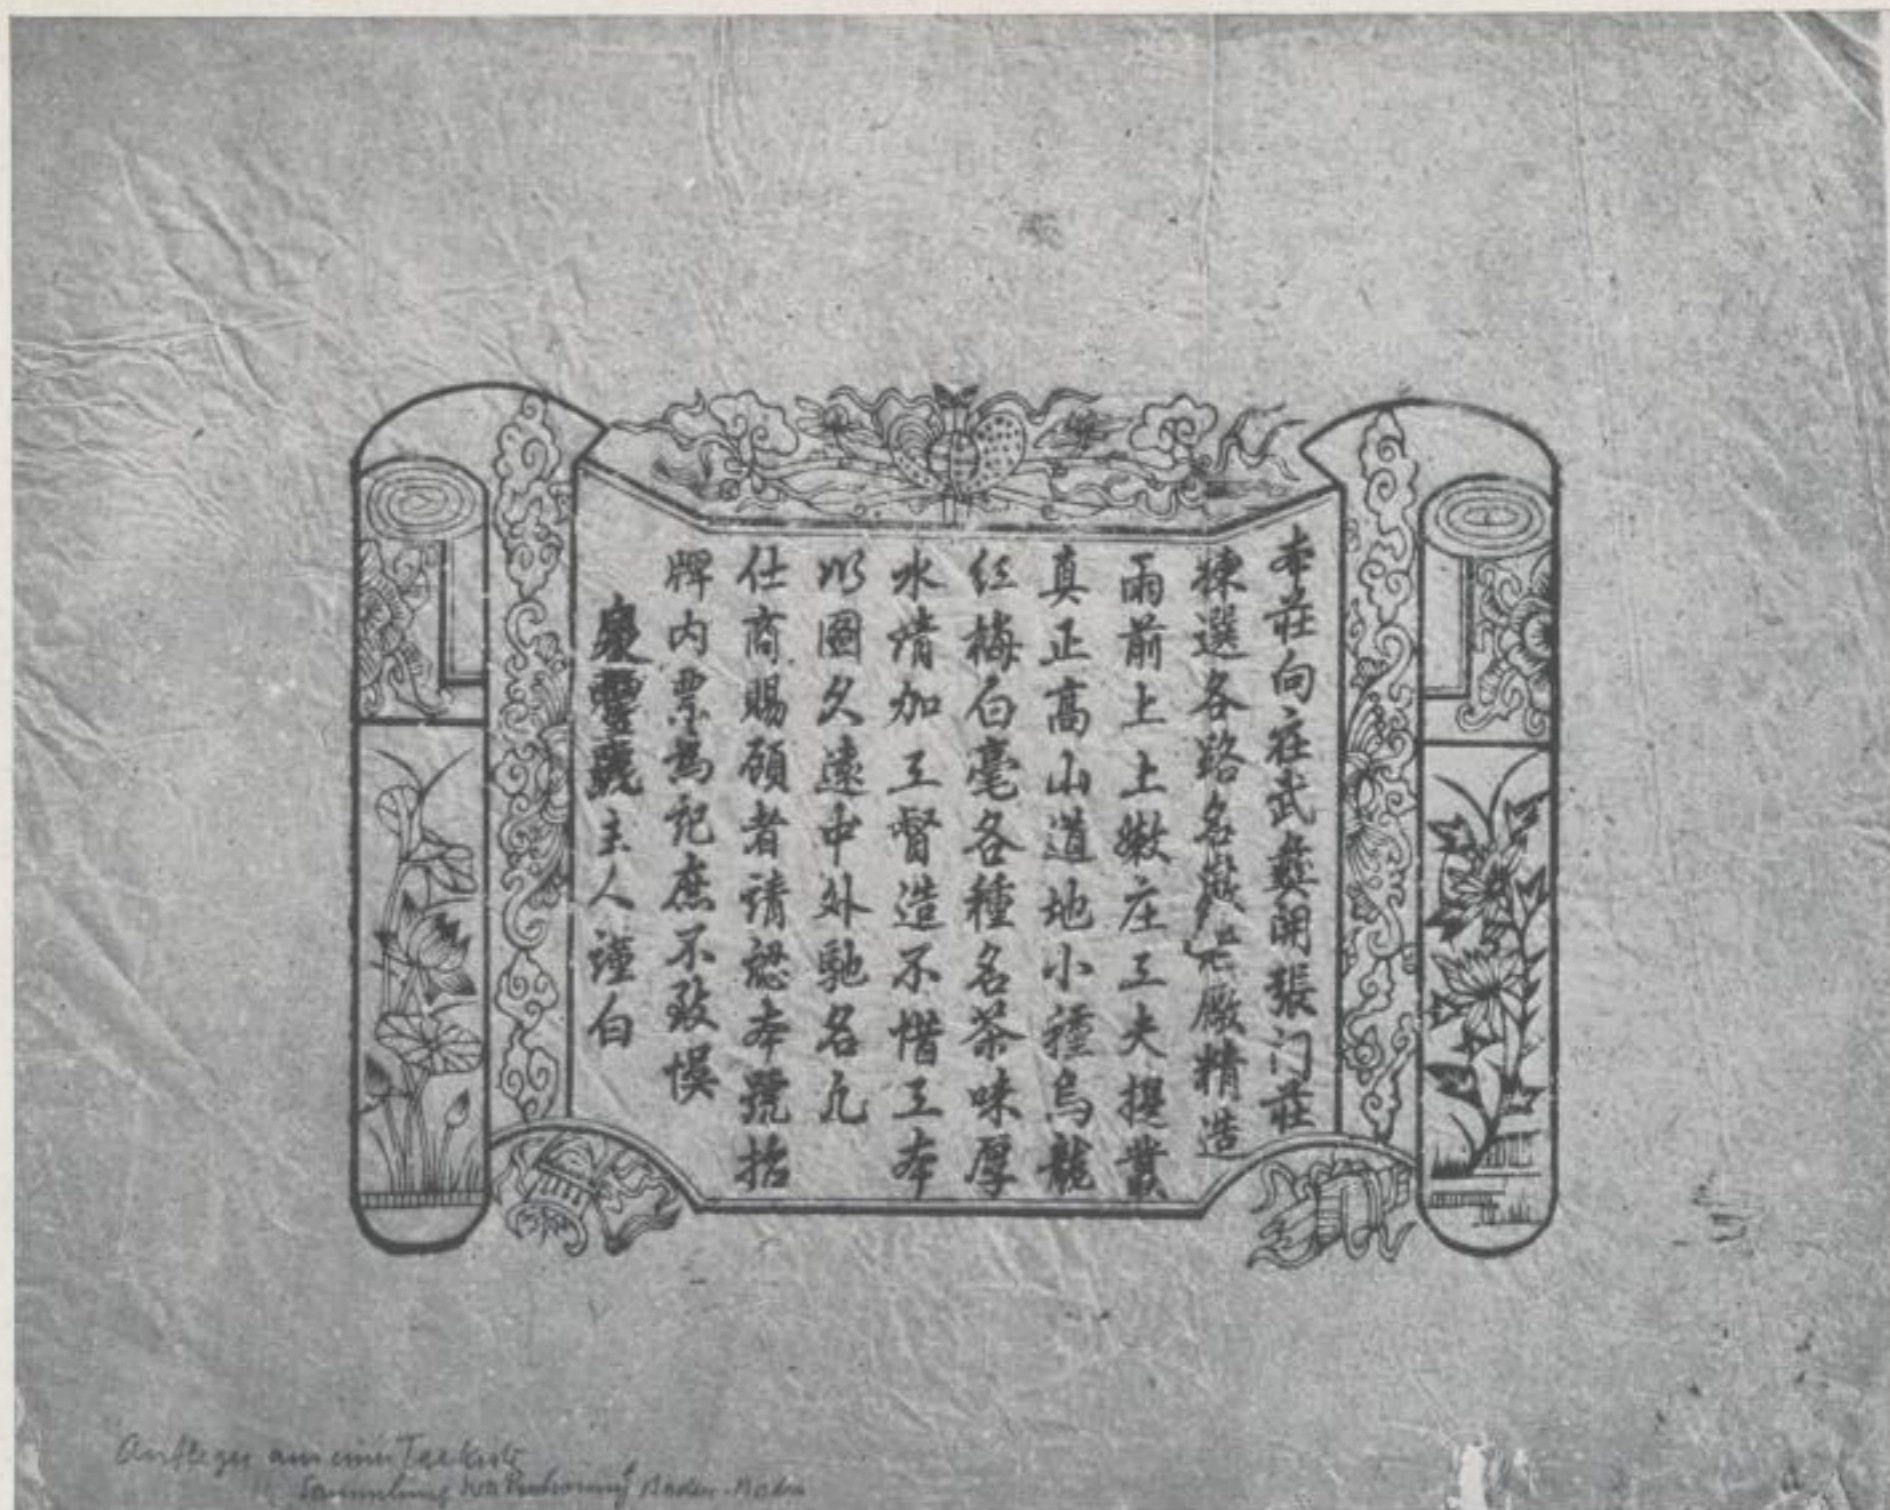 本莊向在武彝開張门莊
揀選各路名巖 廠精造
雨前上上嫩庄工夫提叢
真正高山道地小種烏龍
红梅白毫各種名茶味厚
水清加工督造不惜工本
以圖久遠中外馳名凡
仕商賜顧者請認本號招
牌内票為記庶不致悞
主人謹白
Aufleger aus einer Teekiste
Sammlung Baden-Baden